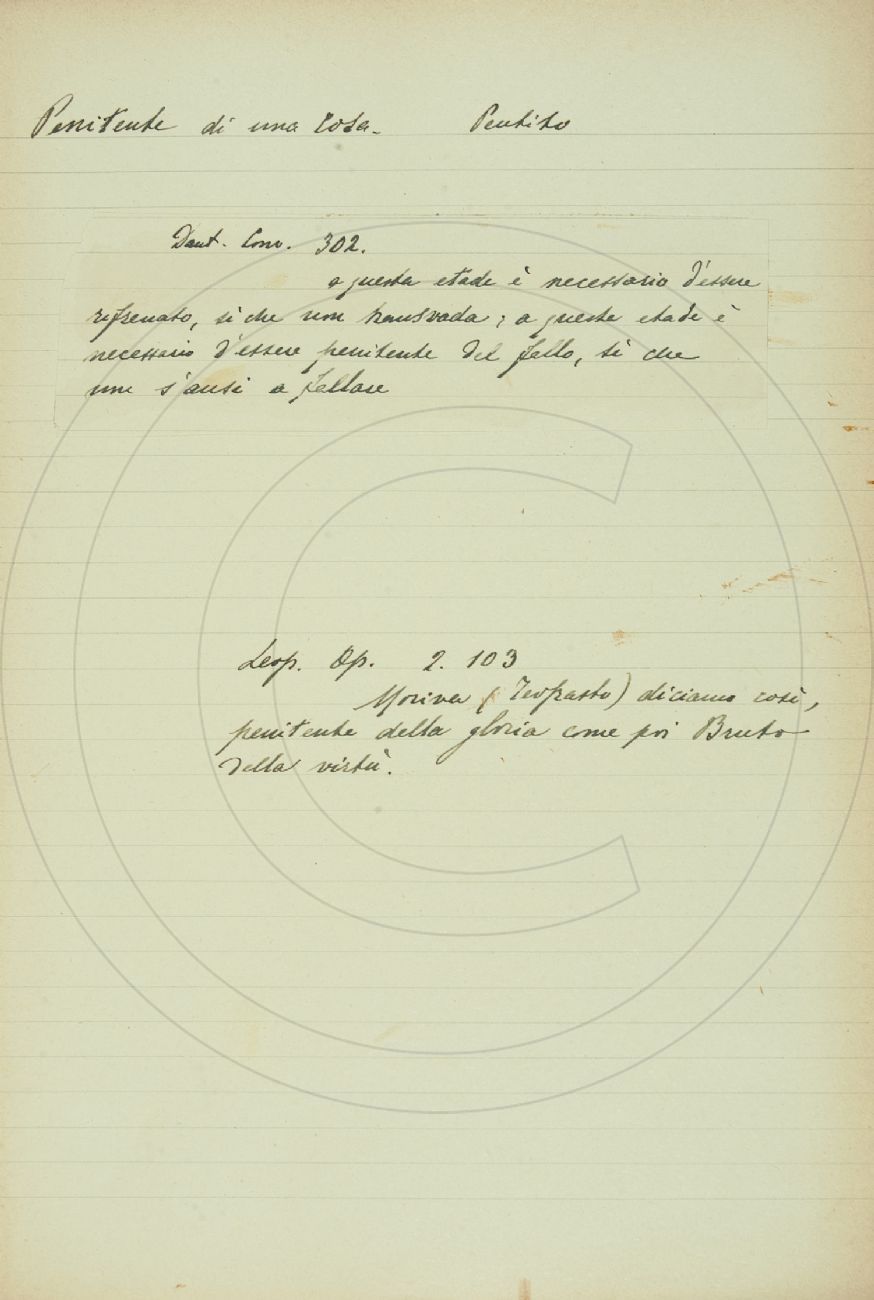 Penitente di una cosa. Pentito
Dant. Conv. 302.
a questa etade è necessario d'essere
rifrenato, sì che non transvada; a questa etade è
necessario d'essere penitente del fallo, sì che
non s'ausi a fallare
Leop. Op. 2. 103
Moriva (Teofrasto) diciamo così,
penitente della gloria come poi Bruto
della virtù.